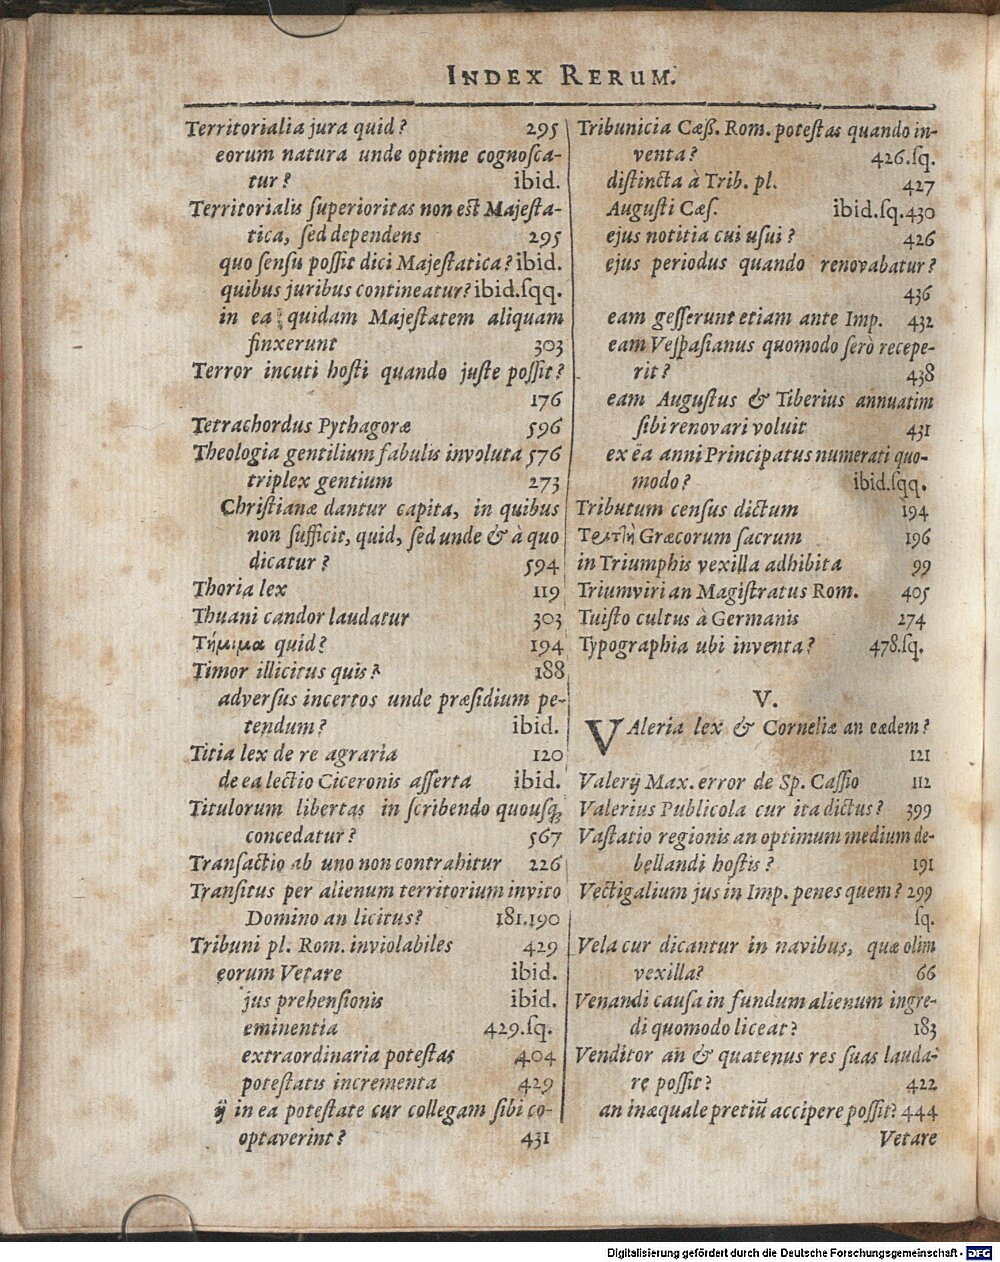 INDEX RERUM.
Territorialia jura quid? 295
eorum natura unde optime cognosca-
tur? ibid.
Territorialis superioritas non est Majesta-
tica, sed dependens 295
quo sensu possit dici Majestatica? ibid.
quibus juribus contineatur? ibid.sqq.
in ea quidam Majestatem aliquam
finxerunt 303
Terror incuti hosti quando juste possit?
176
Tetrachordus Pythagoræ 596
Theologia gentilium fabulis involuta 576
triplex gentium 273
Christianæ dantur capita, in quibus
non sufficit, quid, sed unde & à quo
dicatur? 594
Thoria lex 119
Thuani candor laudatur 303
Τήμιμα quid? 194
Timor illicitus quis? 188
adversus incertos unde præsidium pe-
tendum? ibid.
Titia lex de re agraria 120
de ea lectio Ciceronis asserta ibid.
Titulorum libertas in scribendo quousq;
concedatur? 567
Transactio ab uno non contrahitur 226
Transitus per alienum territorium invito
Domino an licitus? 181.190
Tribuni pl. Rom. inviolabiles 429
eorum Vetare ibid.
jus prehensionis ibid.
eminentia 429.sq.
extraordinaria potestas 404
potestatis incrementa 429
ij in ea potestate cur collegam sibi co-
optaverint? 431
Tribunicia Cæss. Rom. potestas quando in-
venta? 426.sq.
distincta à Trib. pl. 427
Augusti Cæs. ibid.sq.430
ejus notitia cui usui? 426
ejus periodus quando renovabatur?
436
eam gesserunt etiam ante Imp. 432
eam Vespasianus quomodo serò recepe-
rit? 438
eam Augustus & Tiberius annuatim
sibi renovari voluit 431
ex ea anni Principatus numerati quo-
modo? ibid.sqq.
Tributum census dictum 194
Græcorum sacrum 196
in Triumphis vexilla adhibita 99
Triumviri an Magistratus Rom. 405
Tuisto cultus à Germanis 274
Typographia ubi inventa? 478.sq.
V.
VAleria lex & Corneliæ an eædem?
121
Valerij Max. error de Sp. Cassio 112
Valerius Publicola cur ita dictus? 399
Vastatio regionis an optimum medium de-
bellandi hostis? 191
Vectigalium jus in Imp. penes quem? 299
sq.
Vela cur dicantur in navibus, quæ olim
vexilla? 66
Venandi causa in fundum alienum ingre-
di quomodo liceat? 183
Venditor an & quatenus res suas lauda-
re possit? 422
an inæquale pretiũ accipere possit? 444
Vetare
Digitalisierung gefördert durch die Deutsche Forschungsgemeinschaft - DFG